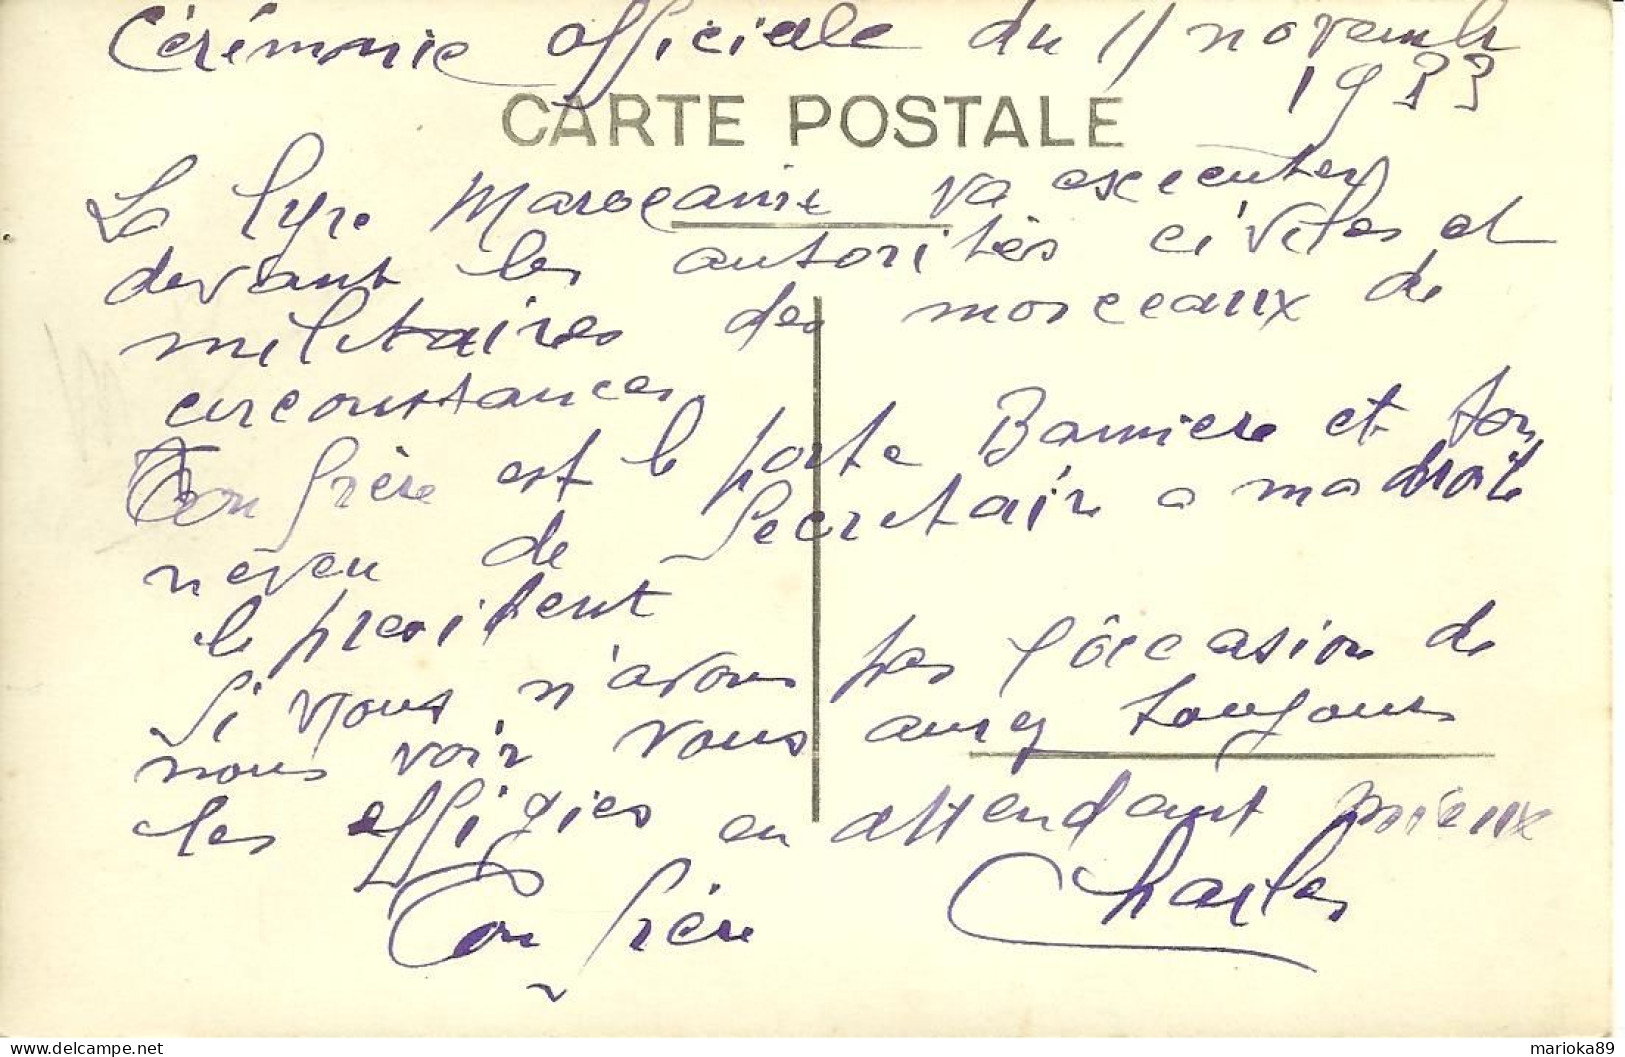 Cérémonie officielle du 11 novembre
1933
CARTE POSTALE
La lyre Marocaine va executer
devant les autorités civiles et
militaires des morceaux de
circonstances
Ton frère est le porte Banniere et ton
neveu de Secretaire a ma droite
le president
Si vous n'avons pas l'occasion de
nous voir vous aurez toujours
les effigies en attendant mieux
Ton frère Charles
marioka89